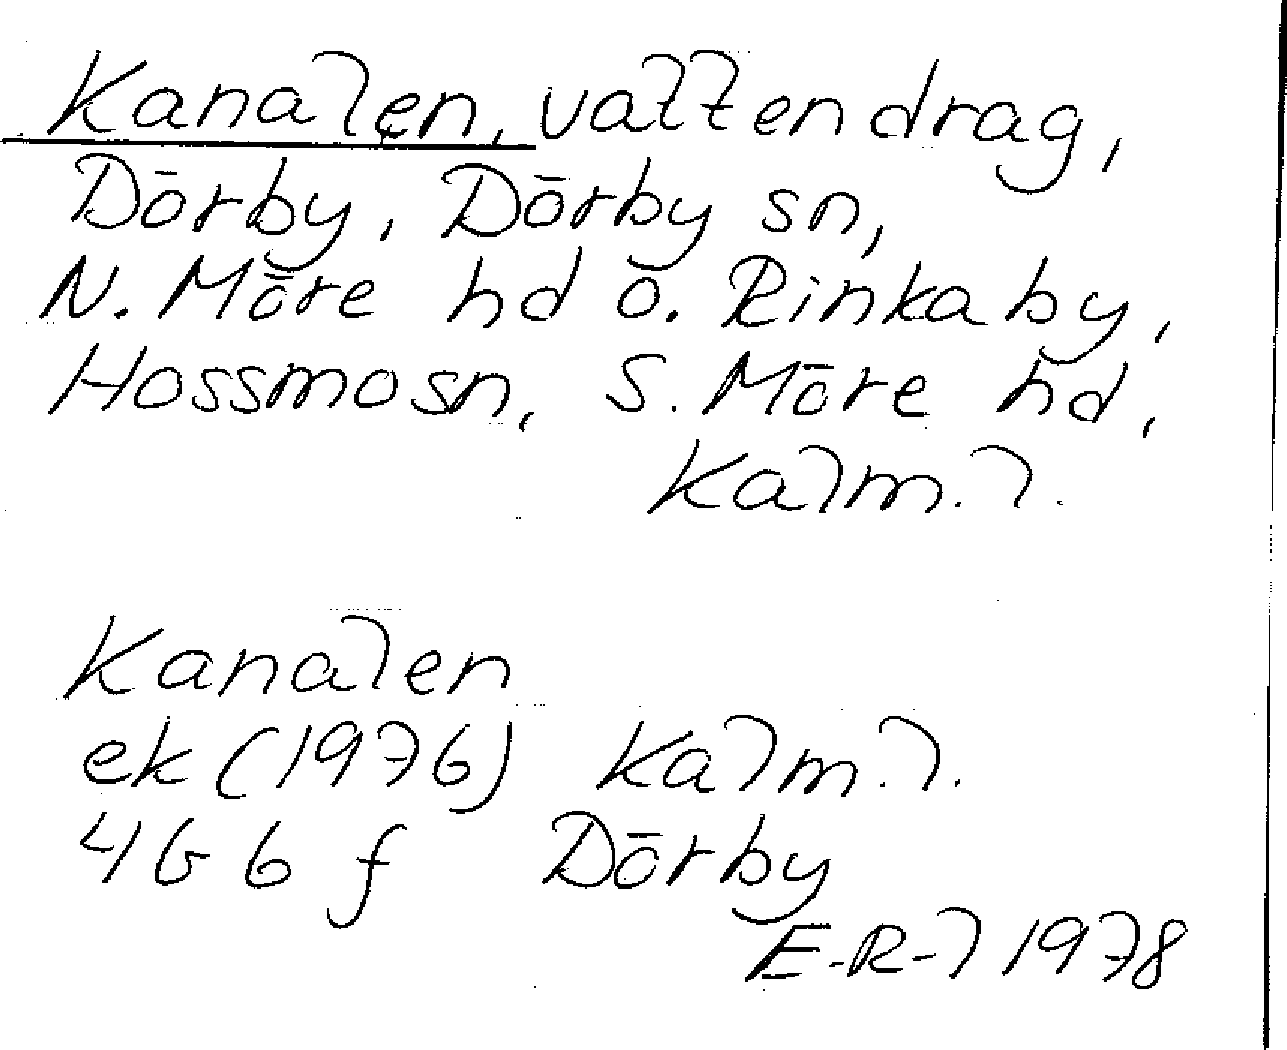 Kanalen, vattendrag,
Dörby, Dörby sn,
N. Möre hd o. Rinkaby,
Hossmo sn, S. Möre hd,
Kalm. l.
Kanalen
ek (1976) Kalm. l.
4G 6 f Dörby
E-R-l 1978